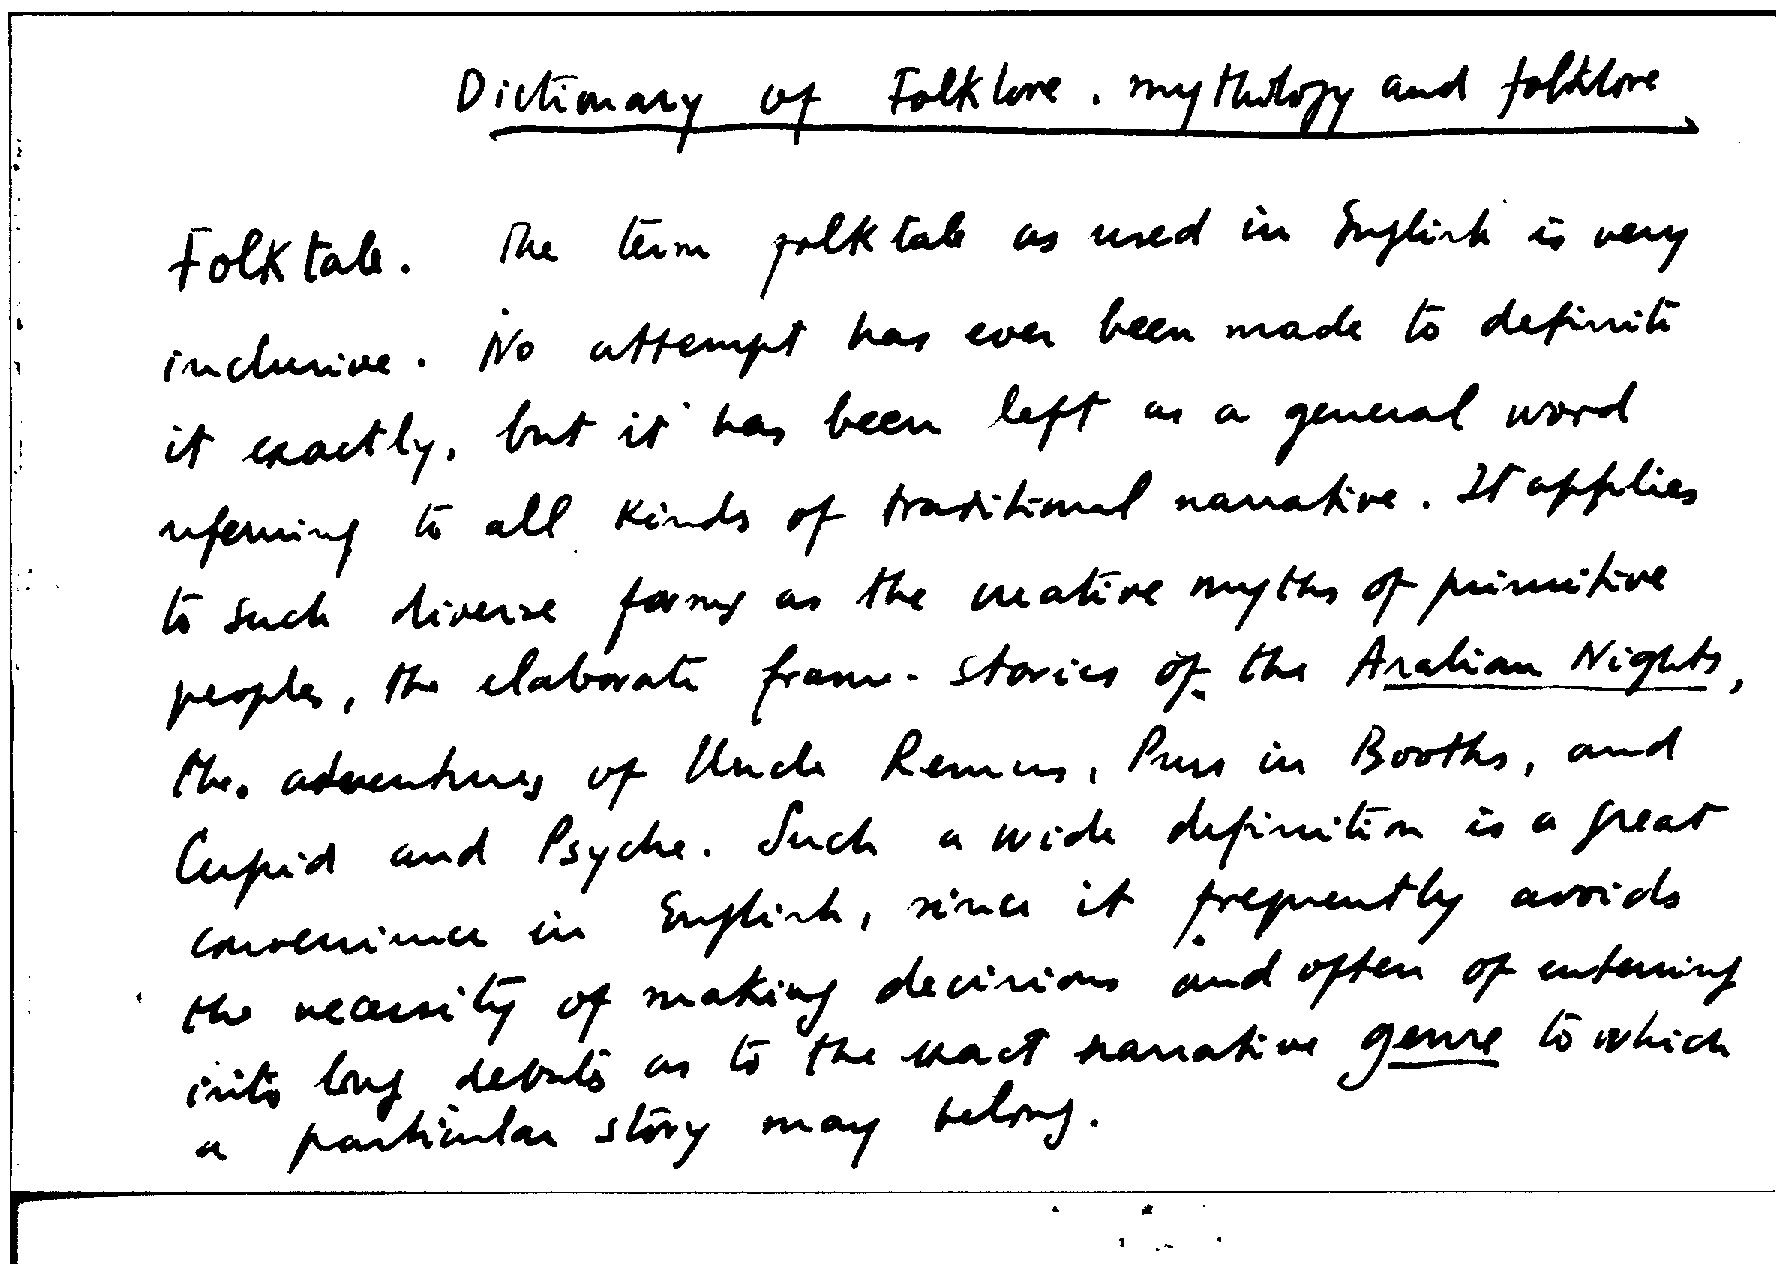 Dictionary of Folklore, mythology and folklore
Folktale. The term folktale as used in English is very
inclusive. No attempt has ever been made to definite
it exactly, but it has been left as a general word
referring to all kinds of traditional narrative. It applies
to such diverse forms as the creative myths of primitive
peoples, the elaborate frame-stories of the Arabian Nights,
the adventures of Uncle Remus, Puss in Booths, and
Cupid and Psyche. Such a wide definition is a great
convenience in English, since it frequently avoids
the necessity of making decisions and often of entering
into long debates as to the exact narrative genre to which
a particular story may belong.